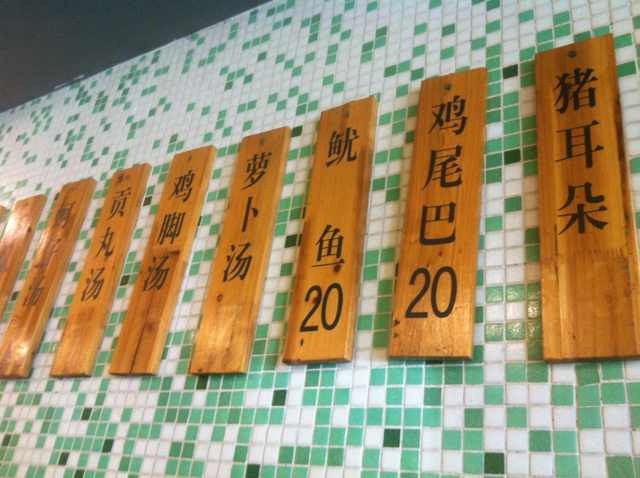 猪耳朵
鸡尾巴
20
鱿鱼
20
萝卜汤
鸡脚汤
贡丸汤
汤